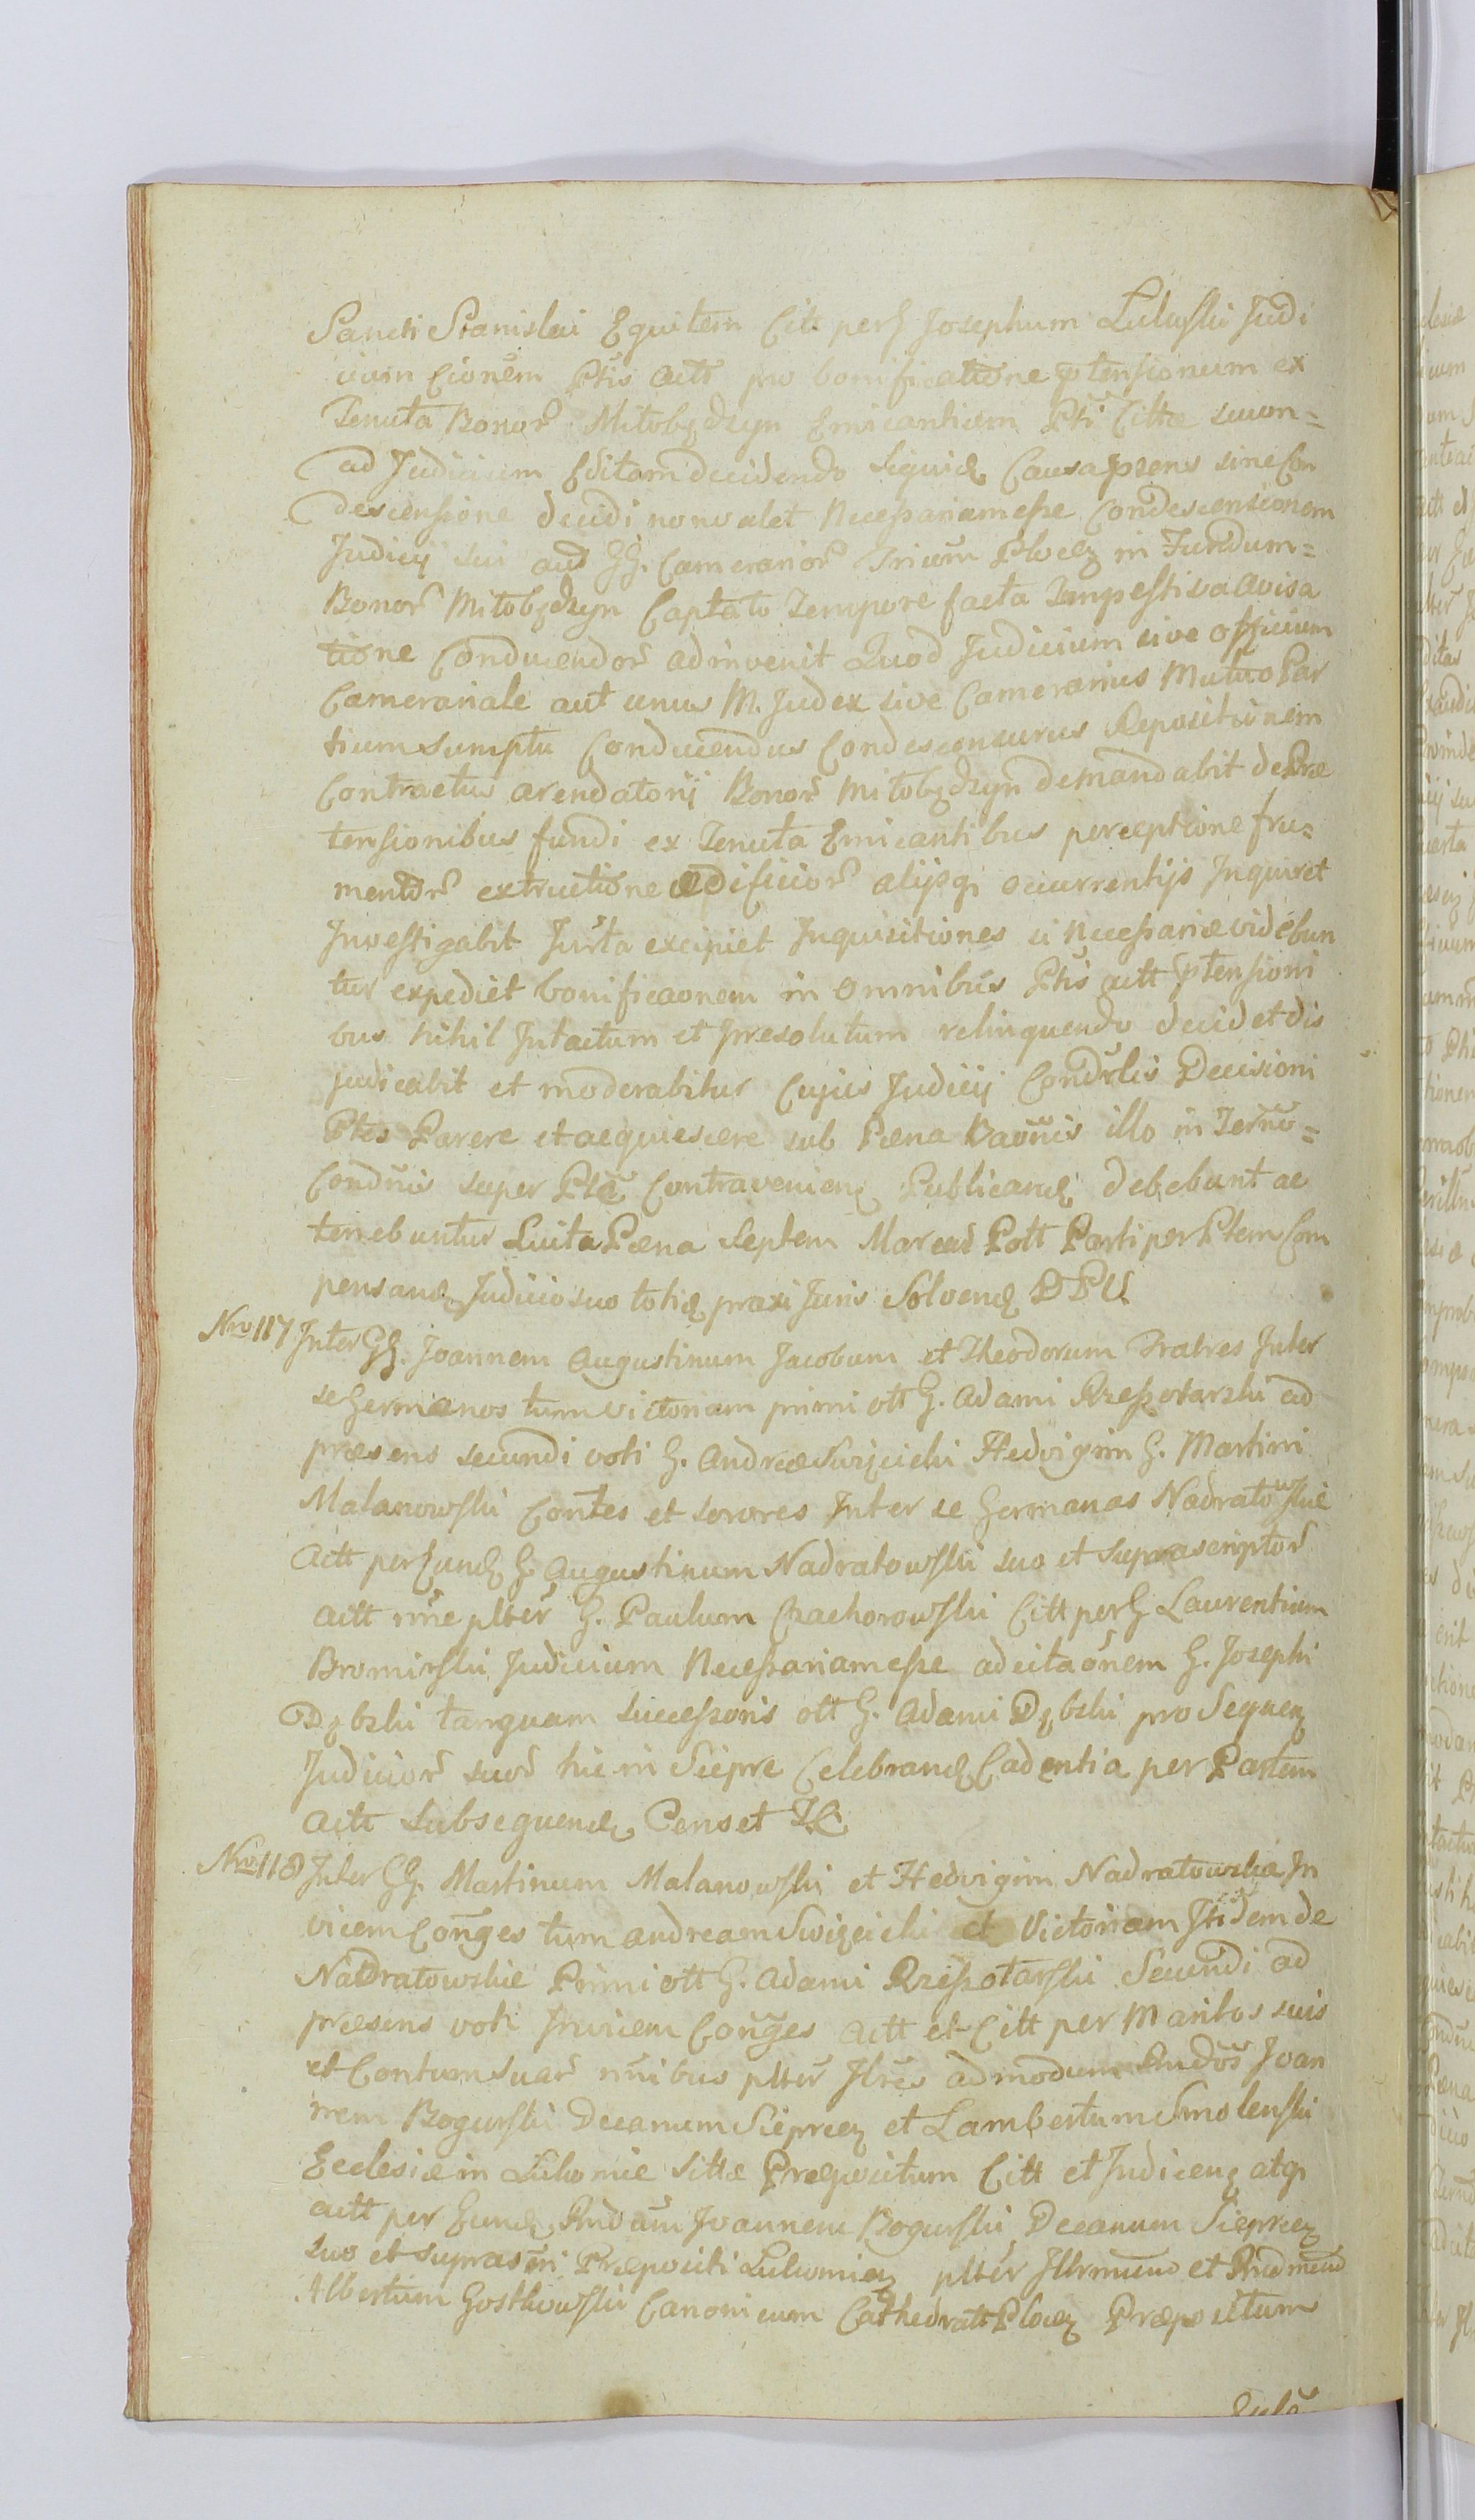 Sancti Stanislai Equitem Citt per G Josephum Luluski Judi
cium Cionem Ptis actt pro bonificatione ptensionum ex
Tenuta Bonor Mitobędzyn Emicantium Pti Cittæ secun=
ad Judicium Editam decidendo Siquid Causa psens sine Con
descensione decidi non valet Necessariam esse Condescensionem
Judicij sui aut GG. Camerarior Trium Plocen in Fundum=
Bonor Mitobędzyn Captato Tempore facta Tempestiva avisa
tione Conducendor adinvenit Quod Judicium sive officium
Camerariale aut unus M. Judex sive Camerarius Mutuo Par
tium sumptu Conducendus Condescensurus Repositionem
Contractus arendatorij Bonor Mitobędzyn demandabit de Præ
tensionibus fundi ex Tenuta Emicantibus perceptione fru=
mentor extructione ædificior alijsq occurrentijs Inquiret
Investigabit Jurta excipiet Inquisitiones si Necessariæ videbun
tur expediet bonificaonem in omnibus Ptis actt ptensioni
bus Nihil Intactum et Iresolutum relinquendo decidet dis
judicabit et moderabitur Cujus Judicij Condrlis Decisioni
Ptes Parere et acquiescere sub Pæna Baonis illo in Termo=
Condnis super Pte Contravenien Publicand debebunt ac
tenebuntur Luita Pæna Septem Marcar Pott Parti per Ptem Com
pensand Judicio suo totid praxi Juris Solvend DPU
Nro 117 Inter GG. Joannem Augustinum Jacobum et Theodorum Fratres Inter
se Germanos tum Victoriam primi ott G. Adami Rzeszotarski ad
præsens secundi voti G. Andreæ Swizęcicki Hedvigim G. Martini
Malanowski Contes et sorores Inter se Germanas Nadratowskie
Actt per Eund G. Augustinum Nadratowski suo et suprascriptor
actt nne plter G. Paulum Czachorowski Citt per G Laurentium
Bromirski Judicium Necessariam esse adcitaonem G. Josephi
Dębski tanquam Successoris ott G. Adami Dębski pro Sequen
Judicior suor hic in Siepre Celebrand Cadentia per Partem
actt Subsequend Censet
Nro 118 Inter GG. Martinum Malanowski et Hedvigim Nadratowska In
vicem Conges tum Andream Swizęcicki et Victoriam Itidem de
Nadratowskie Primi ott G. Adami Rzeszotarski Secundi ad
præsens voti Invicem Conges actt et Citt per Maritos suis
et Contum suar nnibus plter Illres admodum Rndos Joan
nem Bogurski Decanum Sieprcen et Lambertum Smolenski
Ecclesiæ in Lukomie Sittæ Præpositum Citt et Judicenę atq
actt per Eund Rndum Joannem Bogurski Decanum Sieprcen
suo et suprasri Præpositi Lukomien plter Illrmum et Rndmum
Albertum Gostkowski Canonicum Cathedratt Plocen Præpositum